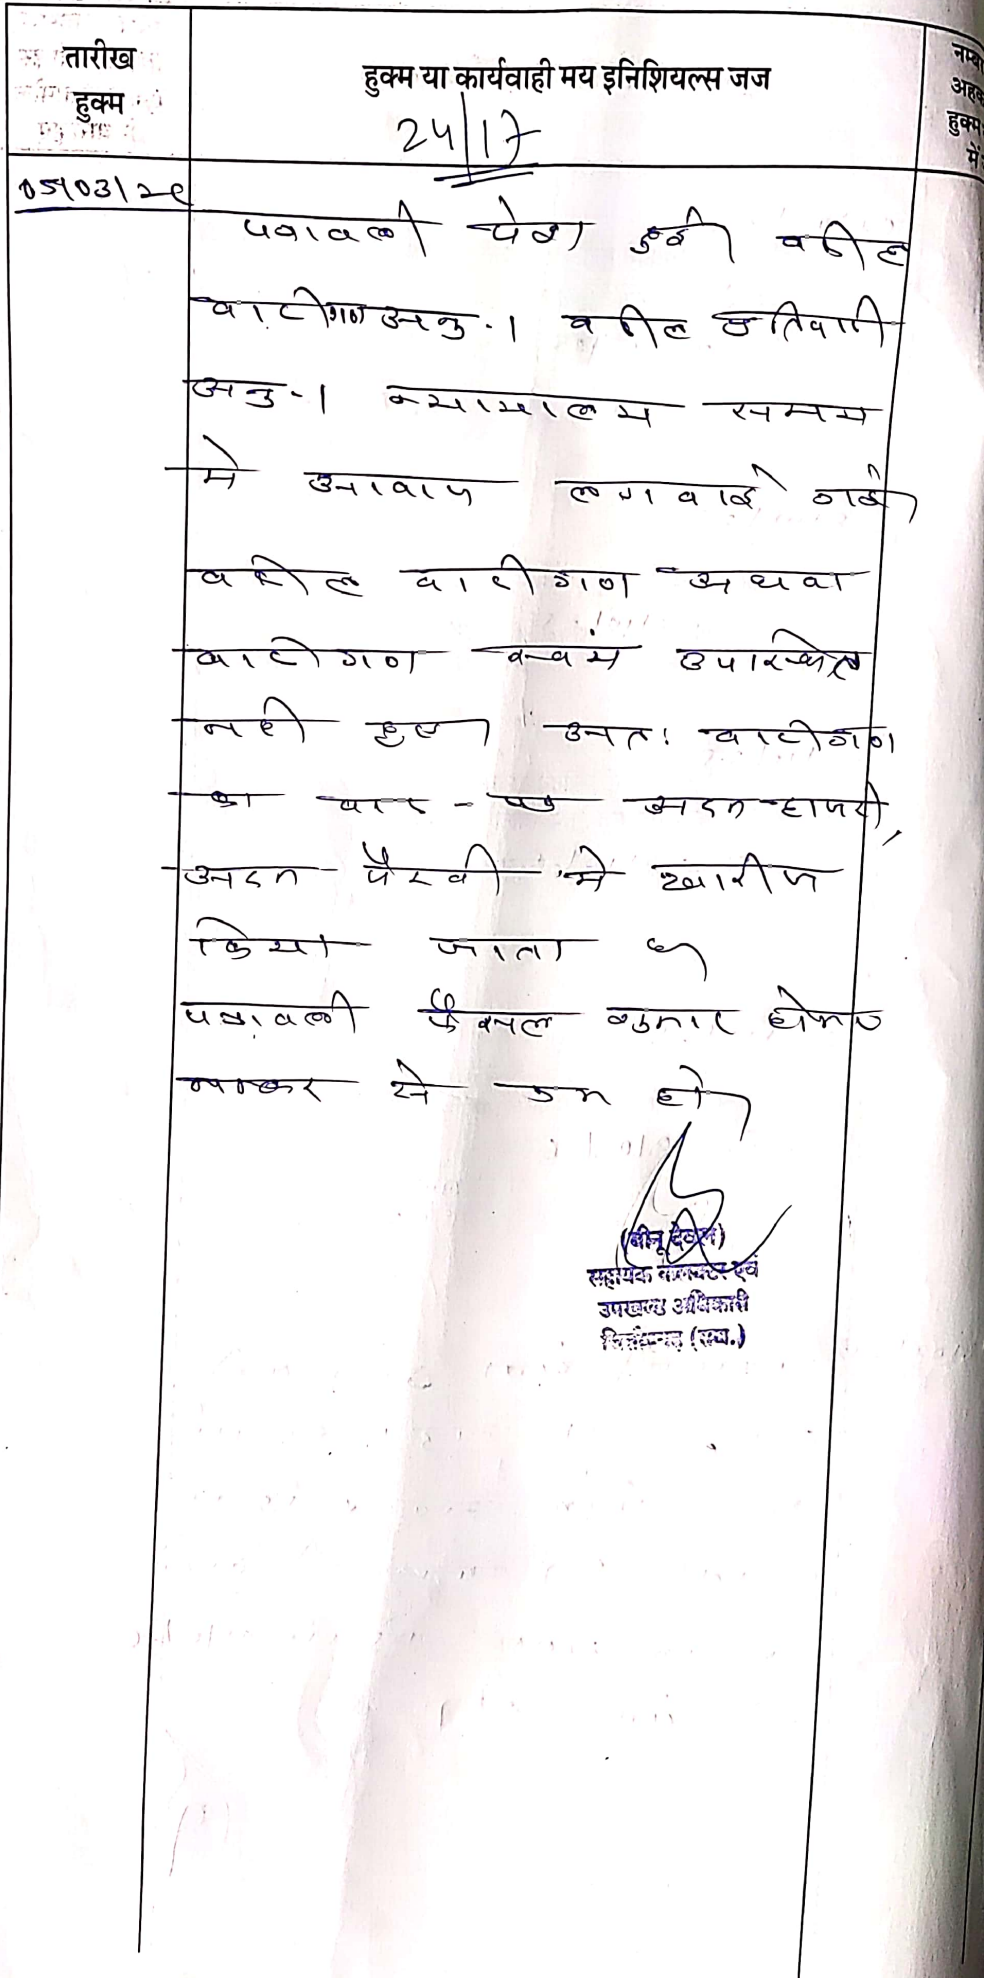 तारीख
हुक्म
हुक्म या कार्यवाही मय इनिशियल्स जज
24/17
हुक्म
में
05/03/
पत्रावली पेश हुई वकील
वादीगण अनु.। वकील प्रतिवादी
अनु.। न्यायालय समय
मे आवाज लगवाई गई
वकील वादीगण अथवा
वादीगण स्वयं उपस्थित
नही हुए। अतः वादीगण
का वाद-पत्र अदम-हाजरी,
अदम पैरवी मे खारीज
किया जाता है।
पत्रावली फैसल शुमार होकर
नम्बर से कम हो।
सहायक कलक्टर एवं
उपखण्ड अधिकारी
(राज.)